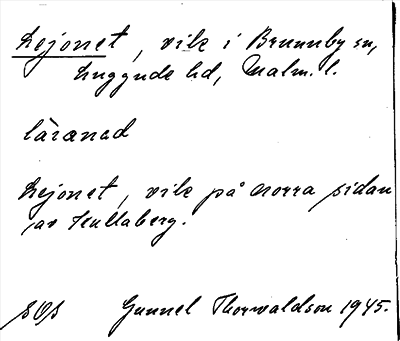 Lejonet, vik i Brunnby sn,
Luggude hd, Malm. l.
läranad
Lejonet, vik på norra sidan
av Kullaberg.
SOS Gunnel Thorwaldson 1945.